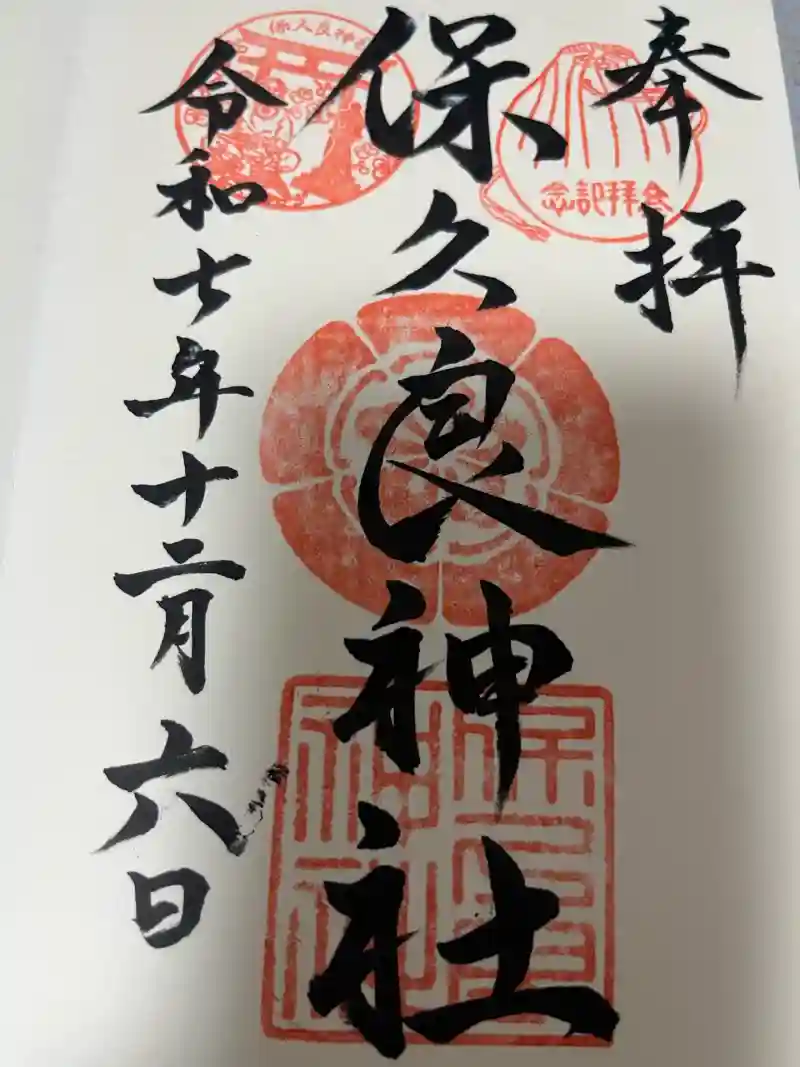 奉拝
参拝記念
保久良神社
保久良神社
令和七年十二月六日